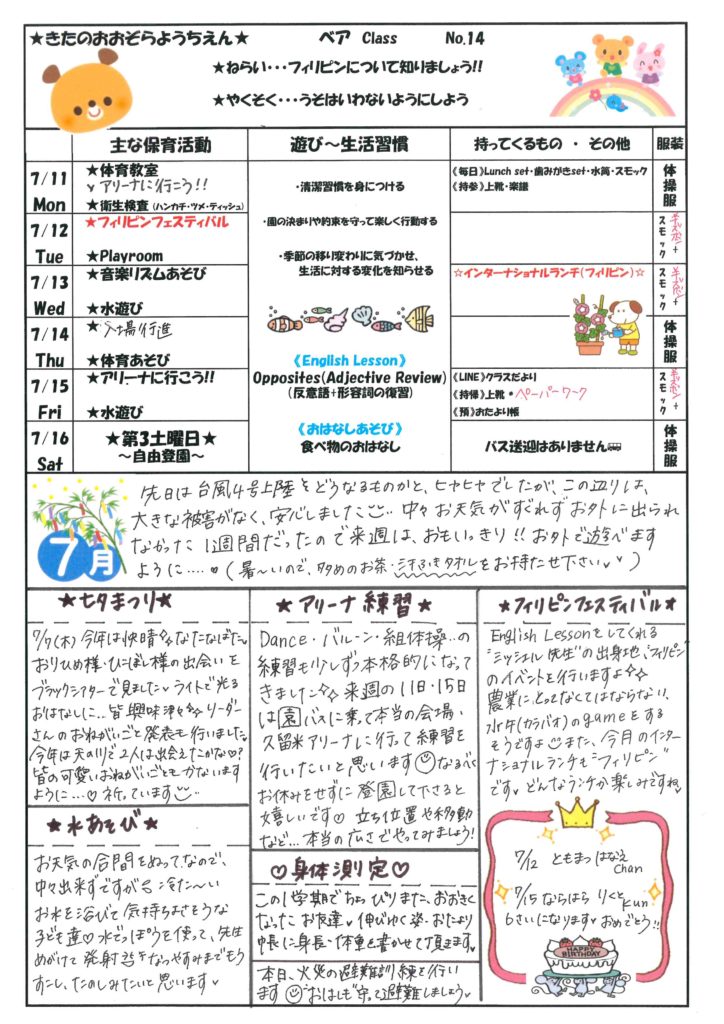 ★きたのおおぞらようちえん★ ベア Class No.14
★ねらい・・・フィリピンについて知りましょう!!
★やくそく・・・うそはいわないようにしよう
主な保育活動 遊び～生活習慣 持ってくるもの ・ その他 服装
7/11 Mon
★体育教室
アリーナに行こう!!
★衛生検査 (ハンカチ・ツメ・ティッシュ)
・清潔習慣を身につける
《毎日》Lunch set・歯みがきset・水筒・スモック
《持参》上靴・楽譜
体操服
7/12 Tue
★フィリピンフェスティバル
★Playroom
・園の決まりや約束を守って楽しく行動する
スモック
7/13 Wed
★音楽リズムあそび
★水遊び
・季節の移り変わりに気づかせ、
生活に対する変化を知らせる
☆インターナショナルランチ(フィリピン)☆
スモック
7/14 Thu
★入場行進
★体育あそび
《English Lesson》
Opposites(Adjective Review)
(反意語+形容詞の復習)
体操服
7/15 Fri
★アリーナに行こう!!
★水遊び
《LINE》クラスだより
《持帰》上靴・ペーパーワーク
《預》おたより帳
スモック
7/16 Sat
★第3土曜日★
～自由登園～
《おはなしあそび》
食べ物のおはなし
バス送迎はありません
体操服
7月
先日は台風4号上陸をどうなるものかと、ヒヤヒヤでしたが、この辺りは、
大きな被害がなく、安心しました 中々お天気がすぐれずお外に出られ
なかった1週間だったので来週は、おもいっきり!!お外で遊べます
ように….(暑〜いので、多めのお茶・汗ふきタオルをお持たせ下さい)
★七夕まつり★
7/7(木)今年は快晴 なたなばた。
おりひめ様・ひこぼし様の出会いを
ブラックシアターで見ました ライトで光る
おはなしに..皆興味津々 リーダー
さんのおねがいごと発表も行いました。
今年は天の川で2人は出会えたかな♡?
皆の可愛いおねがいごともかないます
ように…♡祈っています
★アリーナ練習★
Dance・バルーン・組体操..の
練習も少しずつ本格的になって
きました 来週の11日・15日
は園バスに乗って本当の会場・
久留米アリーナに行って練習を
行いたいと思います なるべく
お休みをせずに登園して下さると
嬉しいです 立ち位置や移動
など…本当の広さでやってみましょう!
★フィリピンフェスティバル★
English Lessonをしてくれる
"ミッシェル先生"の出身地、フィリピン
のイベントを行いますよ
農業にとってなくてはならない、
水牛(カラバオ)のgameをする
そうですよ また、今月のインター
ナショナルランチも"フィリピン"
です どんなランチか楽しみですね
★水あそび★
お天気の合間をぬって、なので、
中々出来ずですが 冷た〜い
お水を浴びて気持ちよさそうな
子ども達♡水でっぽうを使って、先生
めがけて発射 なつやすみまでもう
すこし、たのしみたいと思います
♡身体測定♡
この1学期でちょっぴりまた、おおきく
なったお友達 伸びゆく姿・おたより
帳に身長・体重を書かせて頂きます
本日、火災の避難訓練を行い
ます "おはしも"守って避難しましょう
7/12 ともまつ はなえ Chan
7/15 ならはら りくと Kun
6さいになります おめでとう!!
HAPPY BIRTHDAY